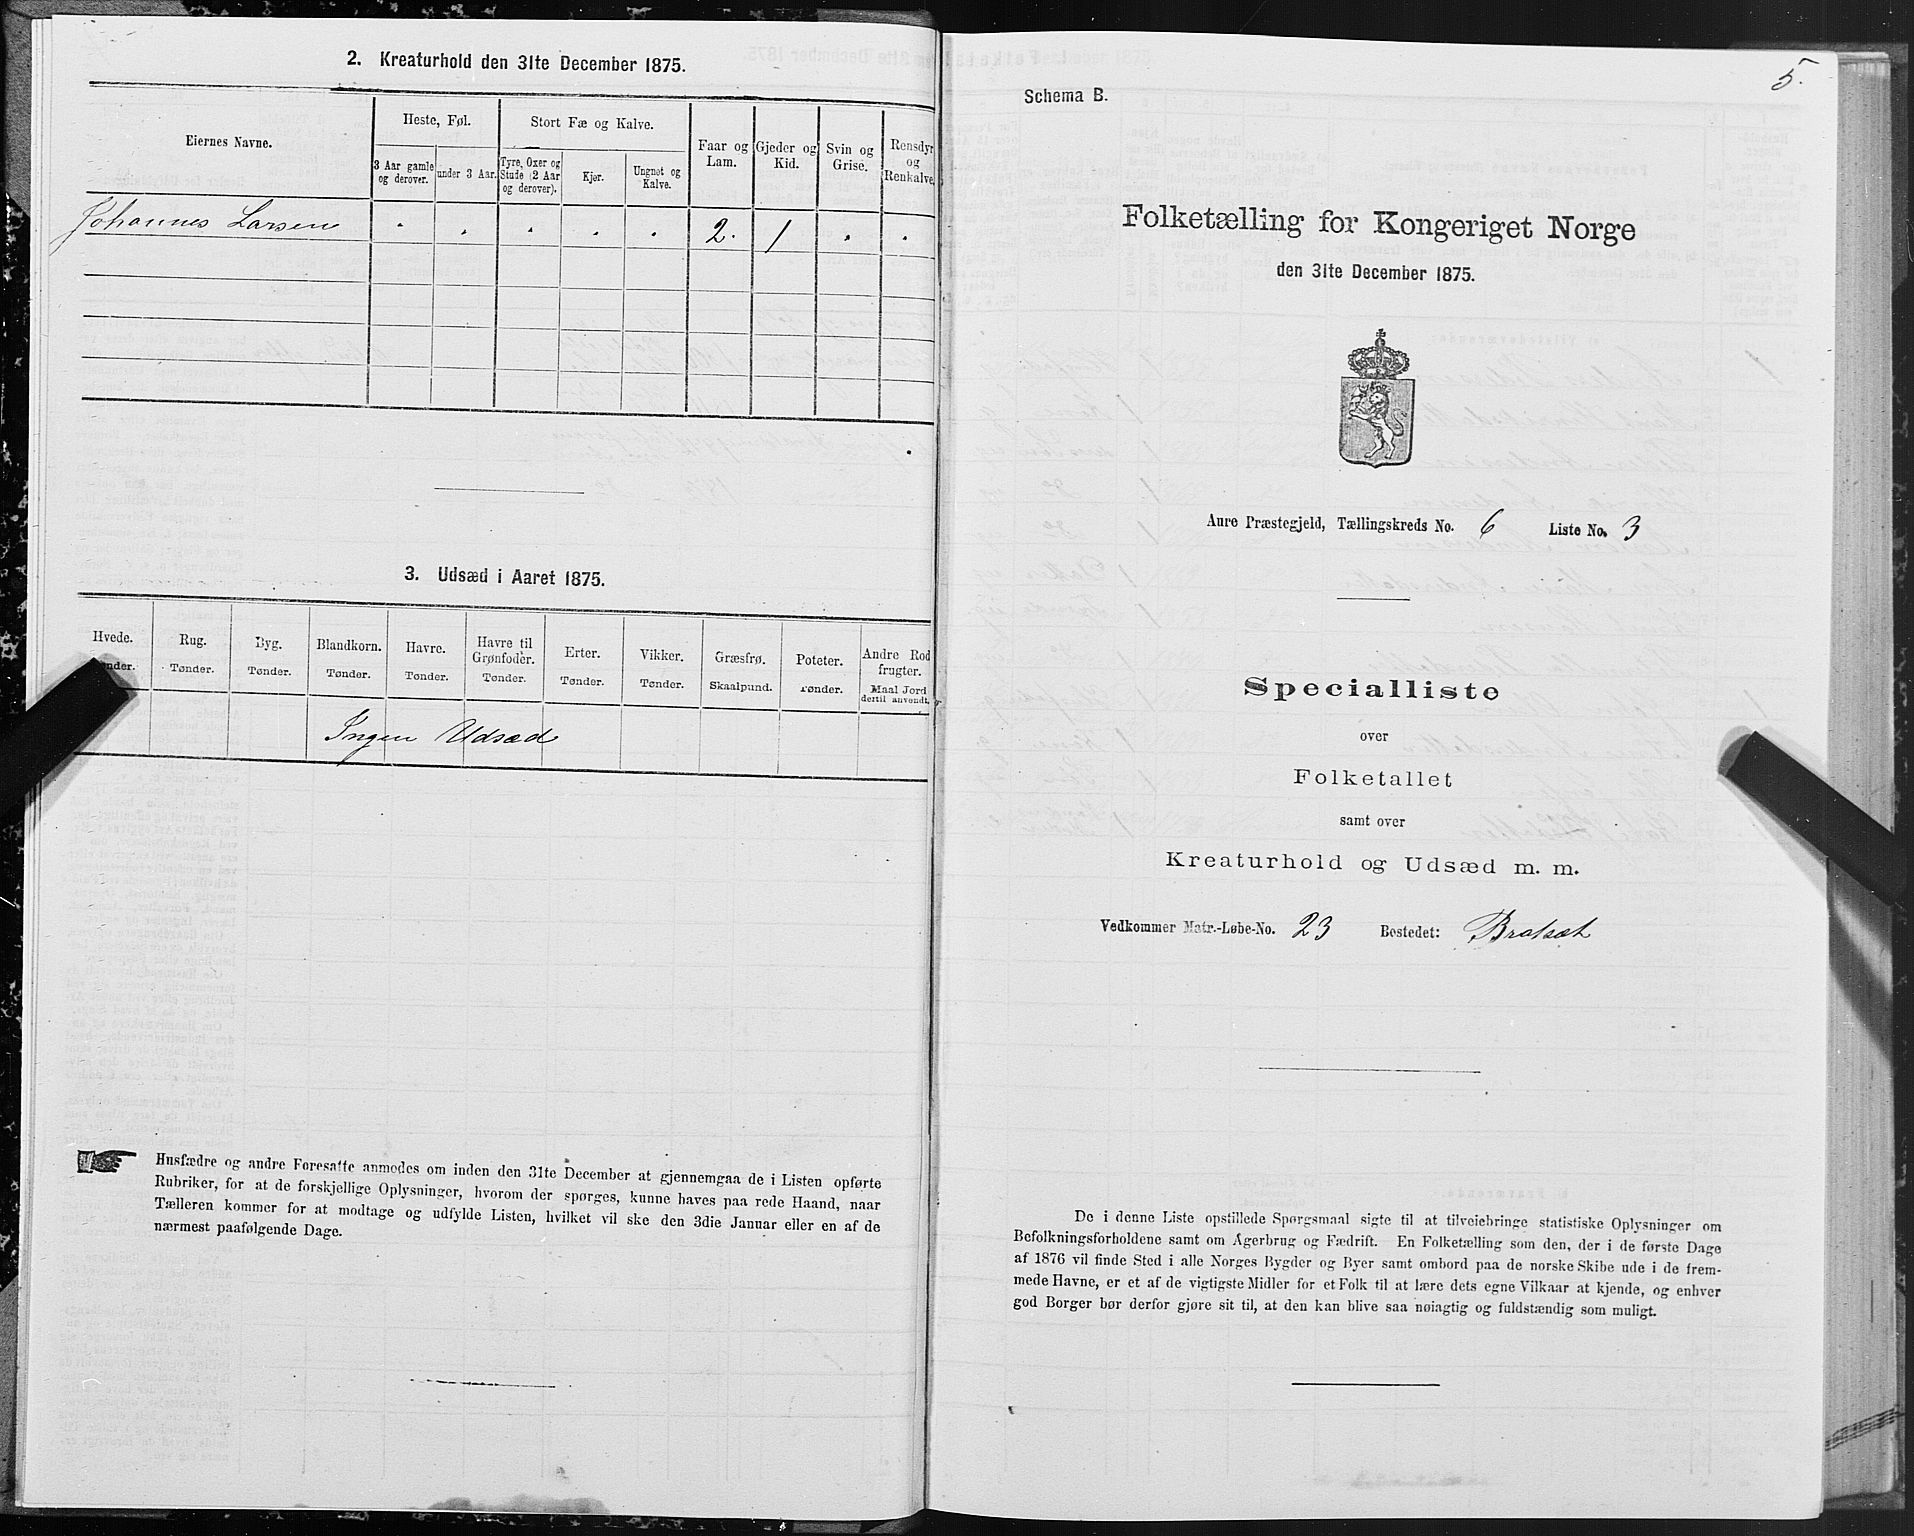 2. Kreaturhold den 31te December 1875.
Eiernes Navne.
Heste, Føl.
Stort Fæ og Kalve.
Faar og Lam.
Gjeder og Kid.
Svin og Grise.
Rensdyr og Renkalve.
3 Aar gamle og derover.
under 3 Aar.
Tyre, Oxer og Stude (2 Aar og derover).
Kjør.
Ungnøt og Kalve.
Johannes Larsen . . . . . 2. 1 . .
3. Udsæd i Aaret 1875.
Hvede. Rug. Byg. Blandkorn. Havre. Havre til Grønfoder. Erter. Vikker. Græsfrø. Poteter. Andre Rodfrugter.
Tønder. Tønder. Tønder. Tønder. Tønder. Tønder. Tønder. Skaalpund. Tønder. Maal Jord dertil anvendt.
Ingen Udsæd
Husfædre og andre Foresatte anmodes om inden den 31te December at gjennemgaa de i Listen opførte
Rubriker, for at de forskjellige Oplysninger, hvorom der spørges, kunne haves paa rede Haand, naar
Tælleren kommer for at modtage og udfylde Listen, hvilket vil ske den 3die Januar eller en af de
nærmest paafølgende Dage.
5.
Schema B.
Folketælling for Kongeriget Norge
den 31te December 1875.
Aure Præstegjeld, Tællingskreds No. 6 Liste No. 3
Specialliste
over
Folketallet
samt over
Kreaturhold og Udsæd m. m.
Vedkommer Matr.-Løbe-No. 23 Bostedet: Bratsæt
De i denne Liste opstillede Spørgsmaal sigte til at tilveiebringe statistiske Oplysninger om
Befolkningsforholdene samt om Agerbrug og Fædrift. En Folketælling som den, der i de første Dage
af 1876 vil finde Sted i alle Norges Bygder og Byer samt ombord paa de norske Skibe ude i de frem-
mede Havne, er et af de vigtigste Midler for et Folk til at lære dets egne Vilkaar at kjende, og enhver
god Borger bør derfor gjøre sit til, at den kan blive saa nøiagtig og fuldstændig som muligt.